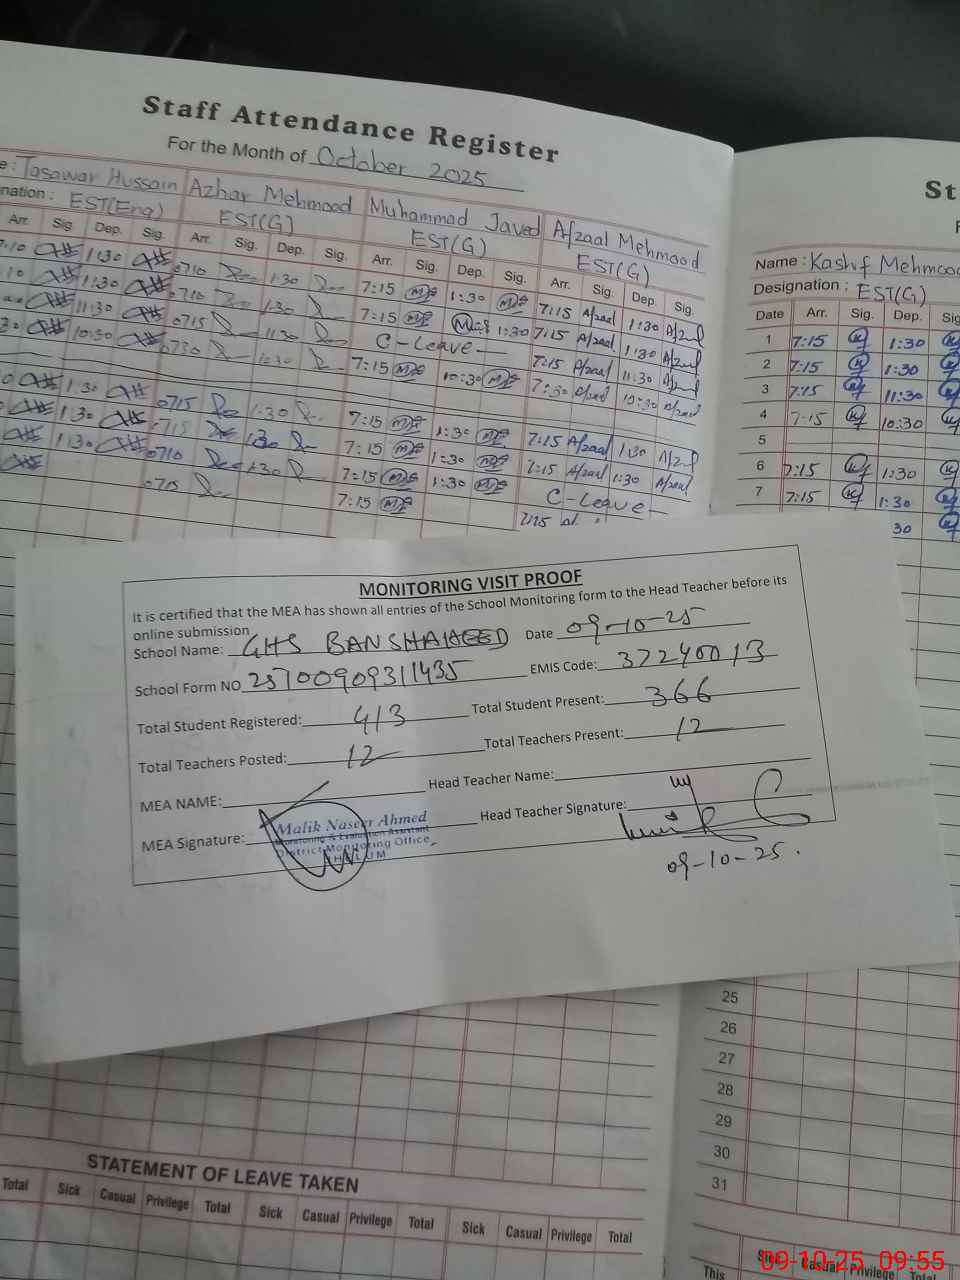 Staff Attendance Register
For the Month of October 2025
e : Tasawar Hussain Azhar Mehmood Muhammad Javed Afzaal Mehmood
nation : EST(Eng) EST(G) EST(G) EST(G)
Arr. Sig. Dep. Sig. Arr. Sig. Dep. Sig. Arr. Sig. Dep. Sig. Arr. Sig. Dep. Sig.
7:10 1:30 0710 1:30 7:15 1:30 7:15 Afzaal 1:30 Afzaal
:10 1:30 0710 1:30 7:15 1:30 7:15 Afzaal 1:30 Afzaal
11:30 0715 11:30 C-Leave 7:15 Afzaal 11:30 Afzaal
30 10:30 0730 10:30 7:15 10:30 7:30 Afzaal 10:30 Afzaal
1:30 0715 1:30 7:15 1:30 7:15 Afzaal 1:30 Afzaal
1:30 0715 1:30 7:15 1:30 7:15 Afzaal 1:30 Afzaal
1:30 0710 1:30 7:15 1:30 C-Leave
0715 7:15 7:15
St
Name : Kashif Mehmood
Designation : EST(G)
Date Arr. Sig. Dep. Sig
1 7:15 1:30
2 7:15 1:30
3 7:15 11:30
4 7:15 10:30
5
6 7:15 1:30
7 7:15 1:30
30
MONITORING VISIT PROOF
It is certified that the MEA has shown all entries of the School Monitoring form to the Head Teacher before its
online submission
School Name: GHS BANSHAHEED Date 09-10-25
School Form NO 25100909311435 EMIS Code: 37240013
Total Student Registered: 413 Total Student Present: 366
Total Teachers Posted: 12 Total Teachers Present: 12
MEA NAME: Head Teacher Name:
MEA Signature: Head Teacher Signature:
Malik Naseer Ahmed
Monitoring & Evaluation Assistant
District Monitoring Office,
JHELUM
09-10-25.
25
26
27
28
29
30
31
STATEMENT OF LEAVE TAKEN
Total Sick Casual Privilege Total Sick Casual Privilege Total Sick Casual Privilege Total
This Sick Casual Privilege Total
09-10-25 09:55